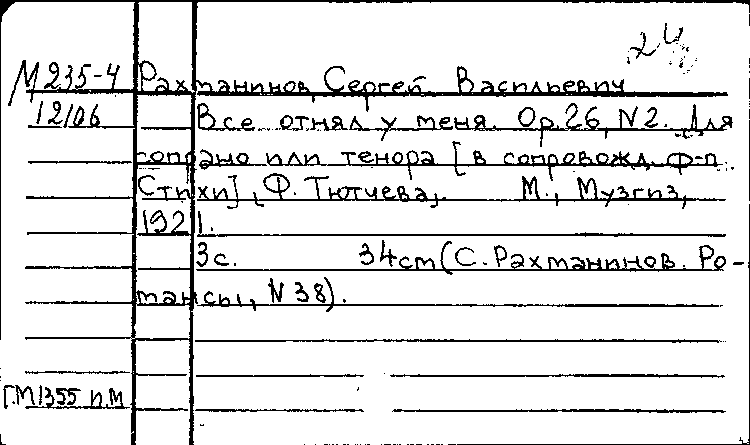 24
М 235-4 Рахманинов, Сергей Васильевич
12/06 Все отнял у меня. Ор.26, N2. Для
сопрано или тенора [в сопровожд. ф-п.
Стихи] Ф. Тютчева. М., Музгиз,
1921.
3с. 34см (С. Рахманинов. Ро-
мансы, N 38).
Г.М 1355 п.М